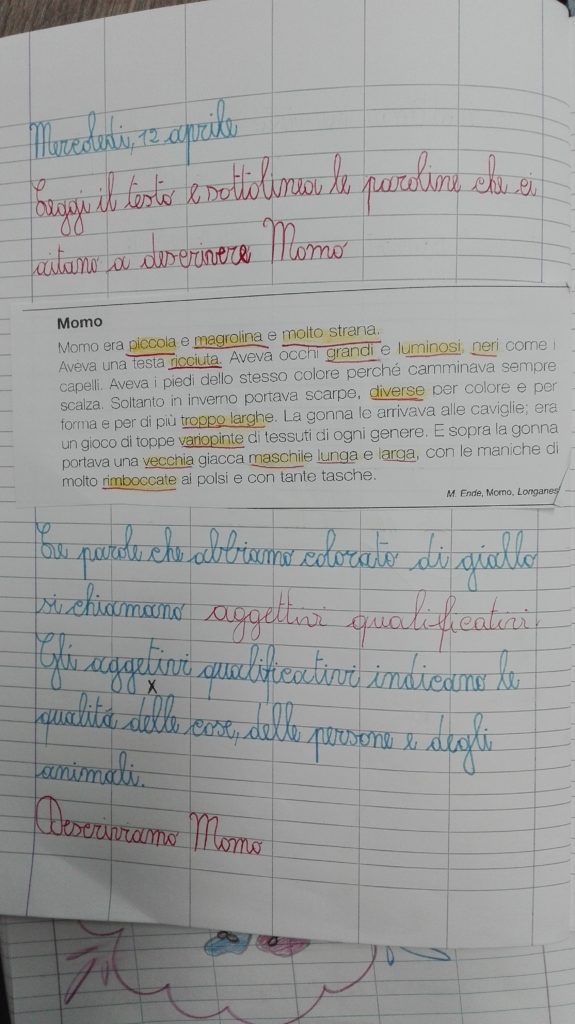 Mercoledì, 12 aprile
Leggi il testo e sottolinea le paroline che ci
aitano a descrivere Momo
Momo
Momo era piccola e magrolina e molto strana.
Aveva una testa ricciuta. Aveva occhi grandi e luminosi, neri come i
capelli. Aveva i piedi dello stesso colore perché camminava sempre
scalza. Soltanto in inverno portava scarpe, diverse per colore e per
forma e per di più troppo larghe. La gonna le arrivava alle caviglie; era
un gioco di toppe variopinte di tessuti di ogni genere. E sopra la gonna
portava una vecchia giacca maschile lunga e larga, con le maniche di
molto rimboccate ai polsi e con tante tasche.
M. Ende, Momo, Longanes
Le parole che abbiamo colorato di giallo
si chiamano aggettivi qualificativi.
Gli aggetivi qualificativi indicano le
x
qualità delle cose, delle persone e degli
animali.
Descriviamo Momo